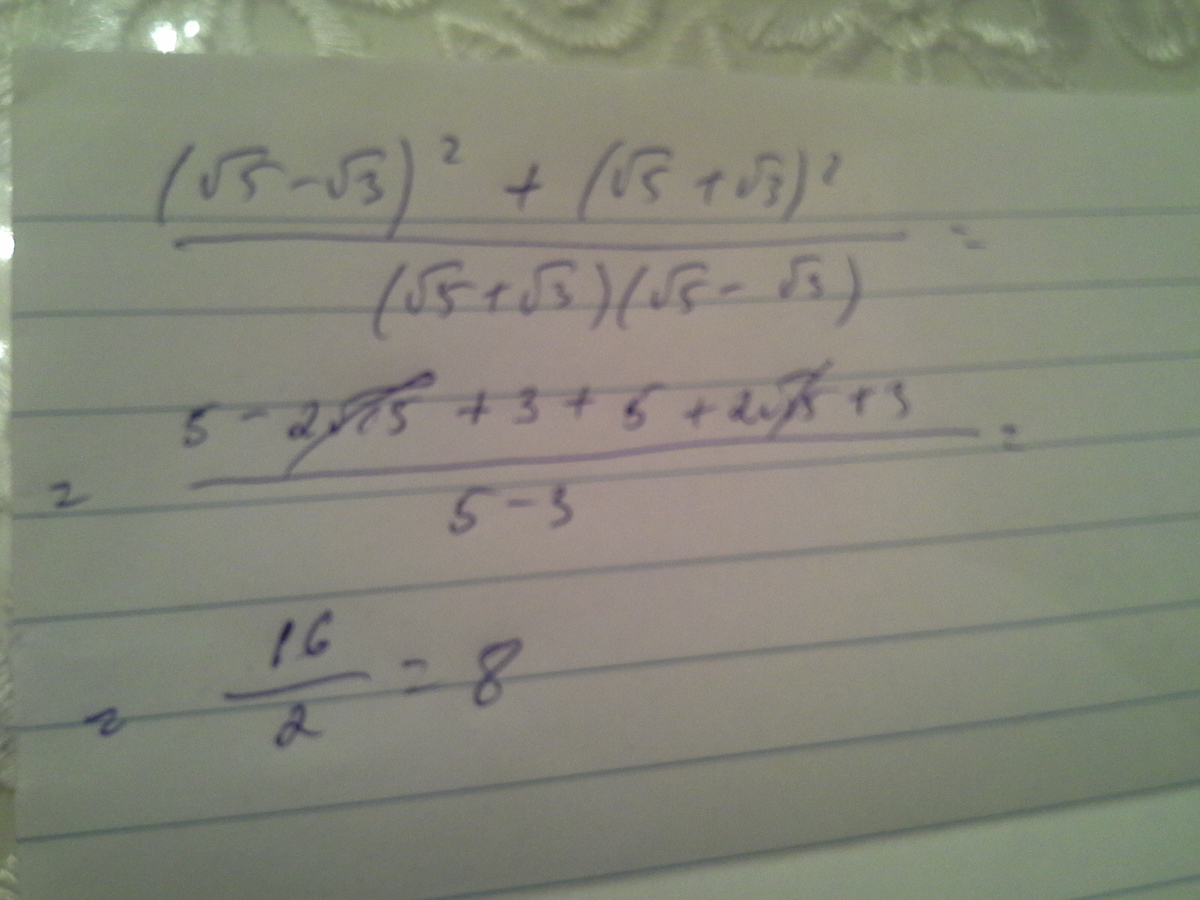 (√5 - √3)² + (√5 + √3)² / (√5 + √3)(√5 - √3) =
= 5 - 2√15 + 3 + 5 + 2√15 + 3 / 5 - 3 =
= 16 / 2 = 8